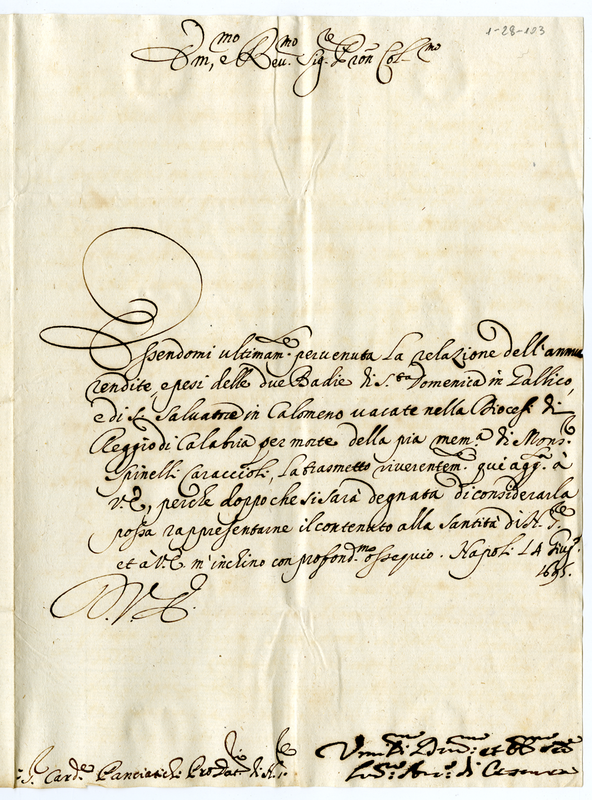 1-28-103
Em.mo, e Rev.mo Sig.re P.ron Col.mo
Essendomi ultimam.te pervenuta la relazione dell'annue
rendite, e pesi delle due Badie di S.ta Domenica in Gallico,
e di S. Salvatore in Calomeno vacate nella Diocesi di
Reggio di Calabria per morte della pia mem.a di Mons.r
Spinelli Caraccioli, la trasmetto riverentem.te qui agg.a à
V.E., perche doppo che si sarà degnata di considerarla
possa rappresentarne il contenuto alla Santità di N. S.re
et à V.E. m'inchino con profond.mo ossequio. Napoli 14 Giug.o
1695.
D. V. E.
S.r Card.e Panciatichi Pro Dat.rio di N. S.re
Um.mo Div.mo et Obb.mo
di Cesarea